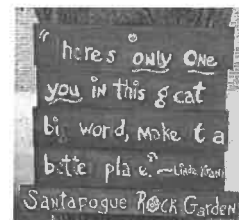 "heres only one
you in this g eat
bi word, make t a
bette pla e."~Linda
Santapogue Rock Garden